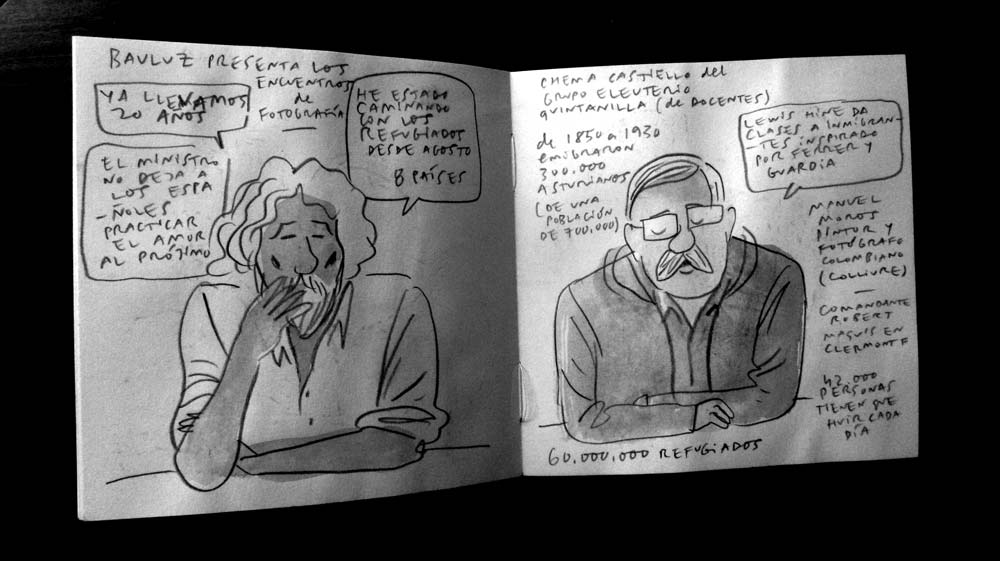 BAULUZ PRESENTA LOS
ENCUENTROS
de
FOTOGRAFÍA
YA LLEVAMOS
20 AÑOS
HE ESTADO
CAMINANDO
CON LOS
REFUGIADOS
DESDE AGOSTO
8 PAÍSES
EL MINISTRO
NO DEJA A
LOS ESPA
-ÑOLES
PRACTICAR
EL AMOR
AL PRÓJIMO
CHEMA CASTIELLO del
GRUPO ELEUTERIO
QUINTANILLA (de DOCENTES)
de 1850 a 1930
EMIGRARON
300.000
ASTURIANOS
(DE UNA
POBLACIÓN
DE 700.000)
LEWIS HINE DA
CLASES A INMIGRAN-
-TES INSPIRADO
POR FERRER Y
GUARDIA
MANUEL
MOROS
PINTOR Y
FOTÓGRAFO
COLOMBIANO
(COLLIURE)
COMANDANTE
ROBERT
MAQUIS EN
CLERMONT F
42.000
PERSONAS
TIENEN QUE
HUIR CADA
DÍA
60.000.000 REFUGIADOS